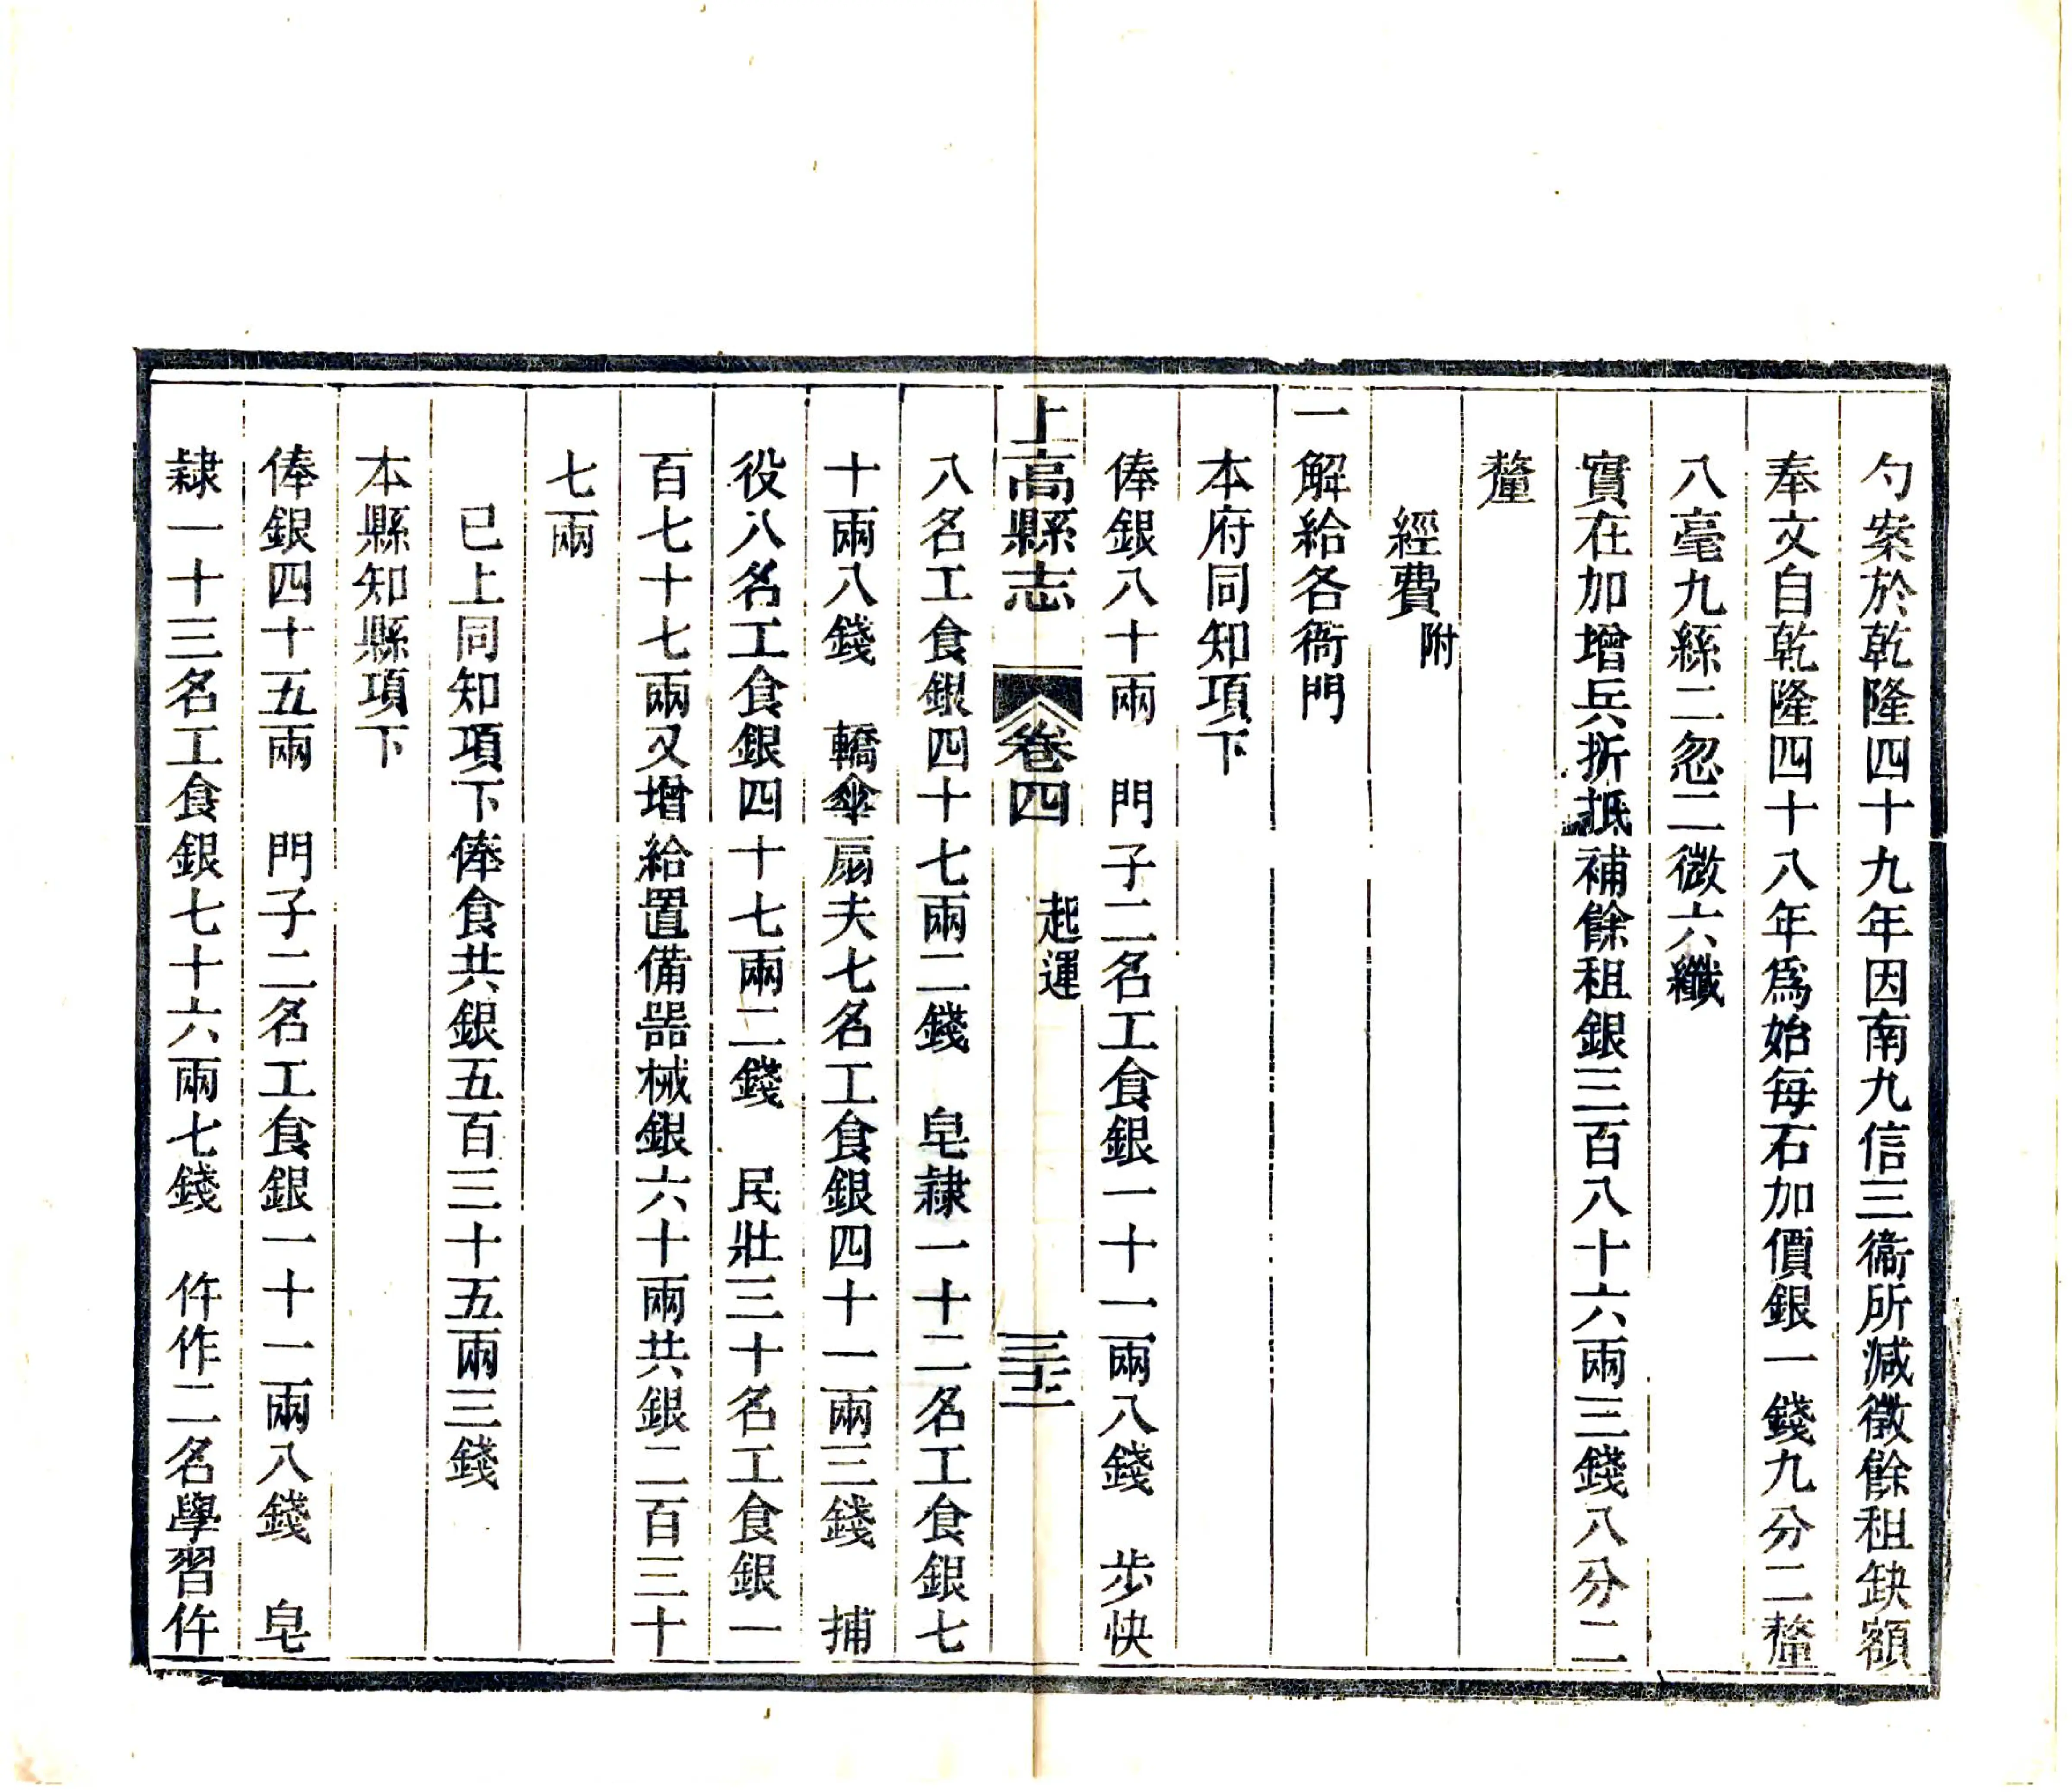 勺案於乾隆四十九年因南九信三衞所減徵餘租缺額
奉文自乾隆四十八年爲始每石加價銀一錢九分二釐
八毫九絲二忽二微六纖
實在加增兵折抵補餘租銀三百八十六兩三錢八分二
釐
經費附
一解給各衙門
本府同知項下
俸銀八十兩　門子二名工食銀一十一兩八錢　步快
上高縣志　卷四　起運　三十二
八名工食銀四十七兩二錢　皂隷一十二名工食銀七
十兩八錢　轎傘扇夫七名工食銀四十一兩三錢　捕
役八名工食銀四十七兩二錢　民壯三十名工食銀一
百七十七兩又增給置備噐械銀六十兩共銀二百三十
七兩
已上同知項下俸食共銀五百三十五兩三錢
本縣知縣項下
俸銀四十五兩　門子二名工食銀一十一兩八錢　皂
隷一十三名工食銀七十六兩七錢　仵作二名學習仵